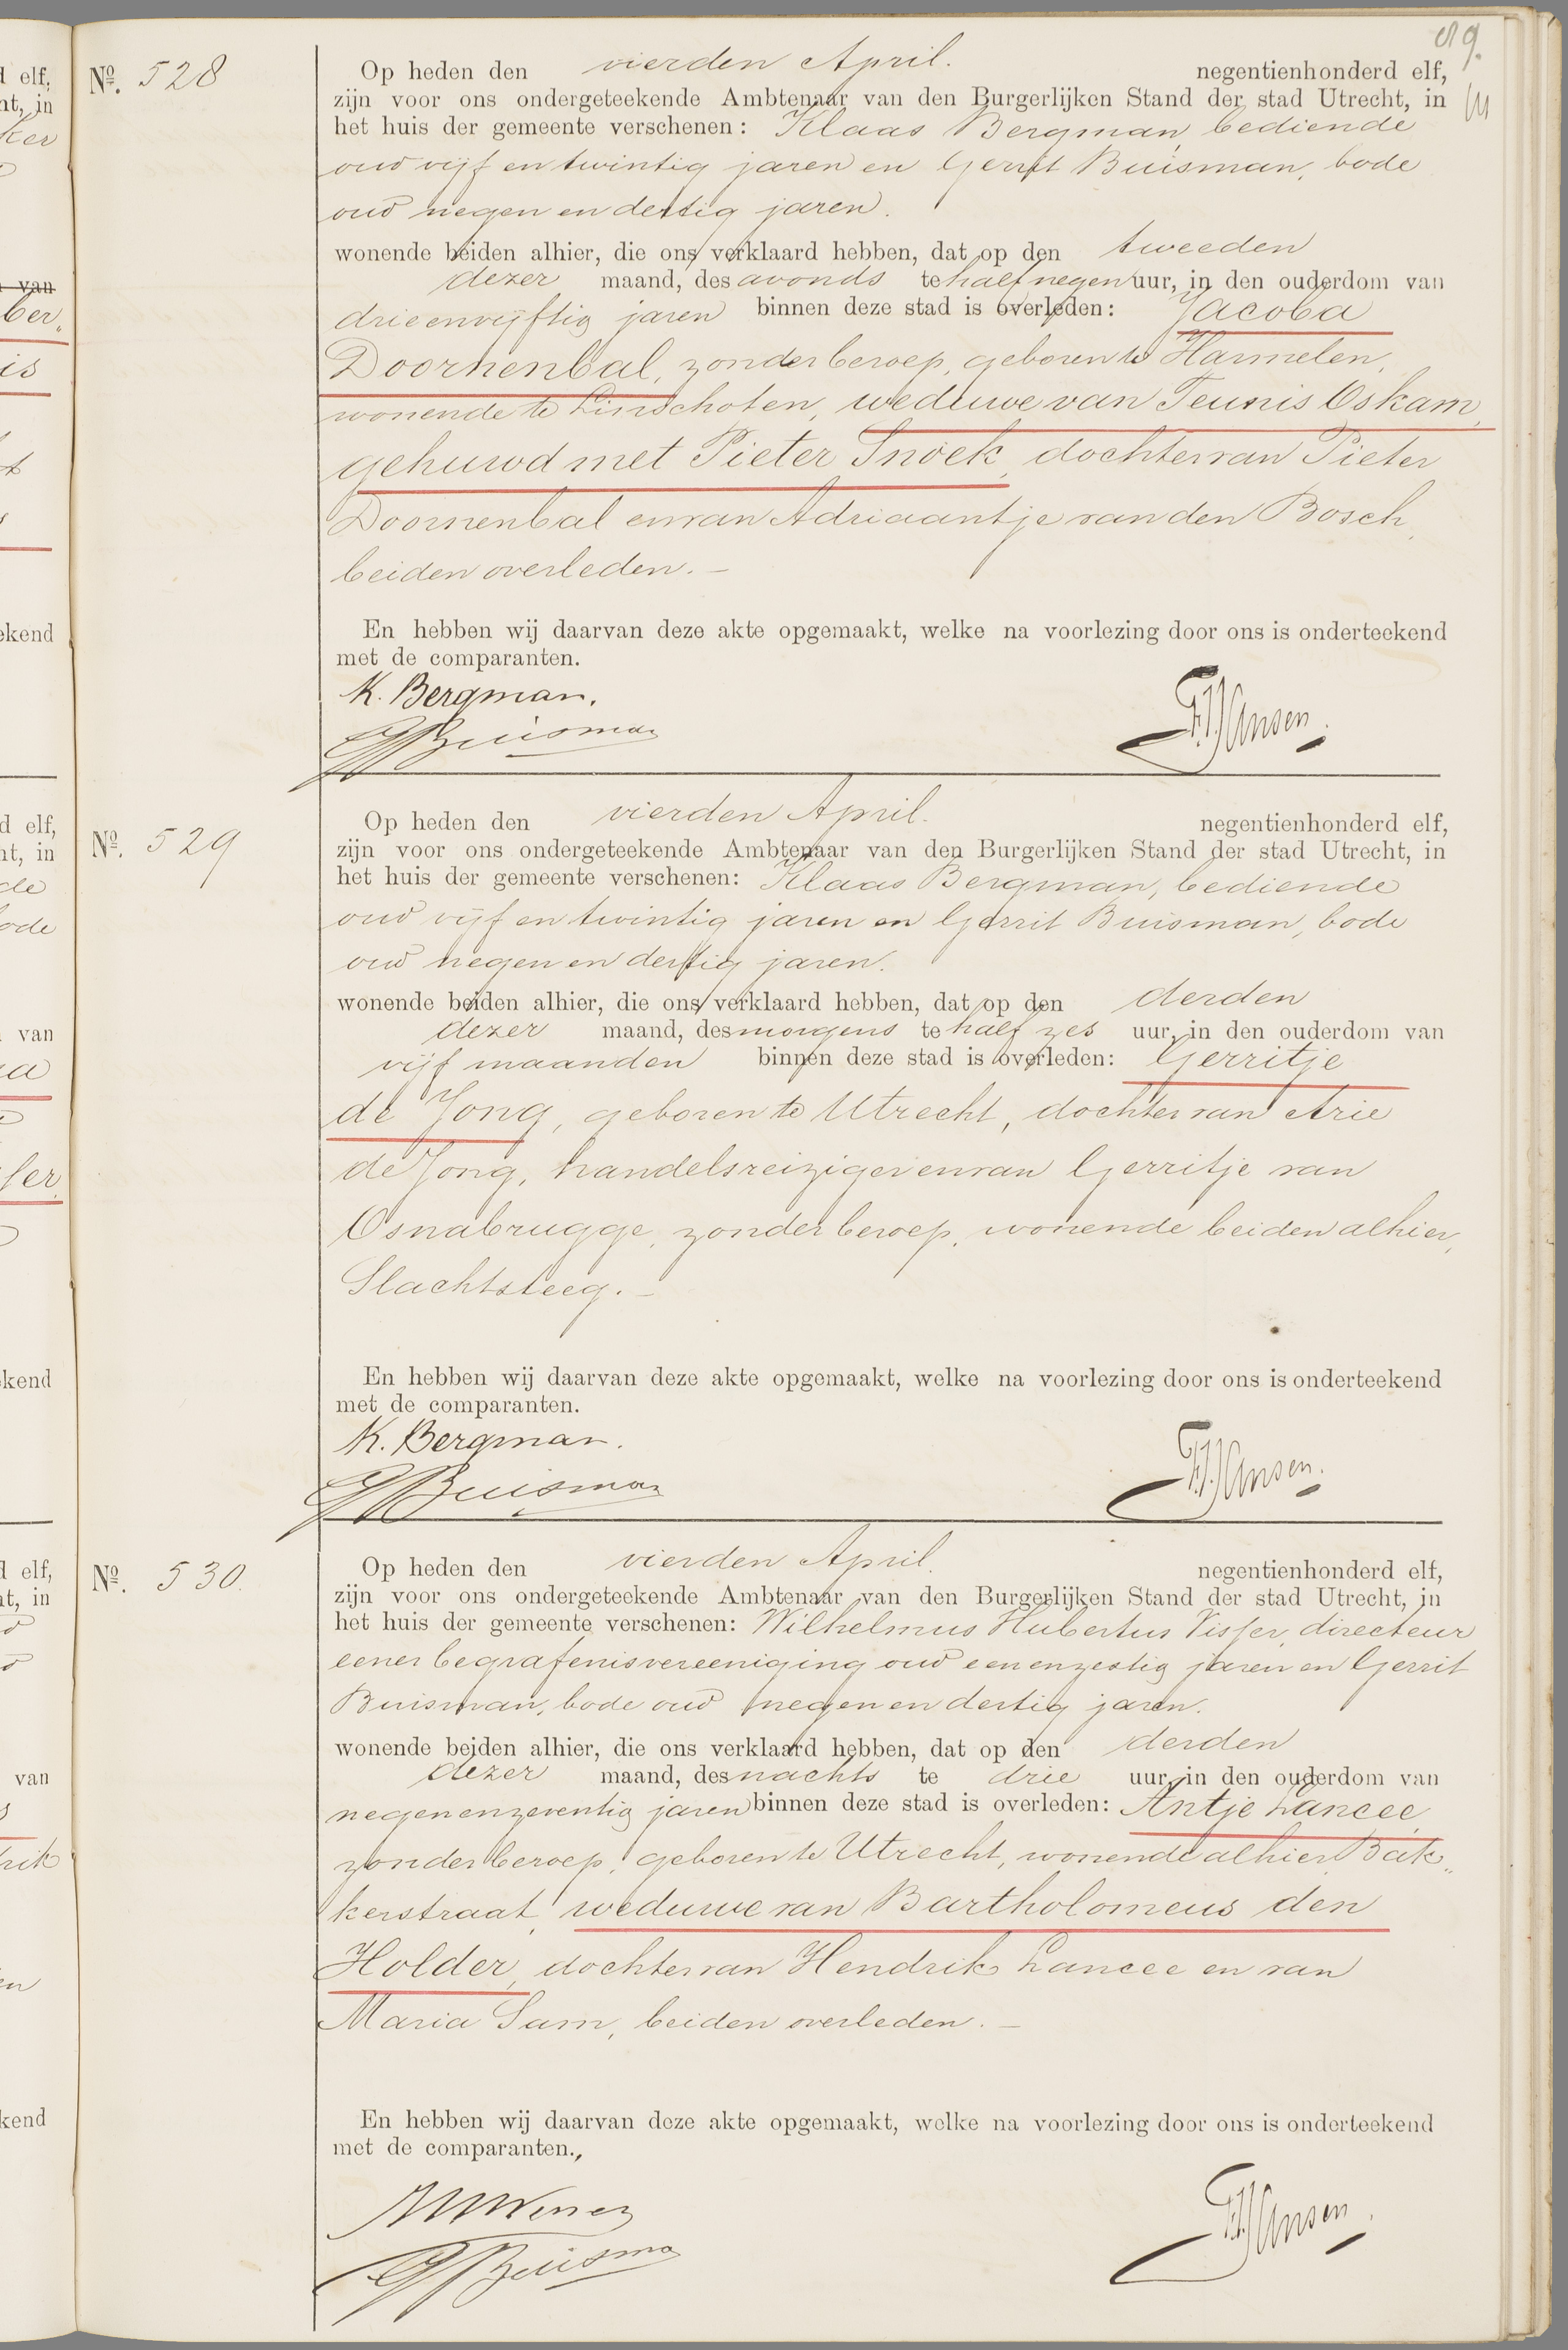 89.
Nº. 528
Op heden den vierden April. negentienhonderd elf,
zijn voor ons ondergeteekende Ambtenaar van den Burgerlijken Stand der stad Utrecht, in
het huis der gemeente verschenen: Klaas Bergman, bediende
oud vijf en twintig jaren en Gerrit Buisman, bode
oud negen en dertig jaren.
wonende beiden alhier, die ons verklaard hebben, dat op den tweeden
dezer maand, des avonds te half negen uur, in den ouderdom van
drieenvijftig jaren binnen deze stad is overleden: Jacoba
Doornenbal, zonder beroep, geboren te Harmelen,
wonende te Linschoten, weduwe van Teunis Oskam,
gehuwd met Pieter Snoek, dochter van Pieter
Doornenbal en van Adriaantje van den Bosch,
beiden overleden. —
En hebben wij daarvan deze akte opgemaakt, welke na voorlezing door ons is onderteekend
met de comparanten.
K. Bergman.
GBuisman
F.J.Jansen.
Nº. 529
Op heden den vierden April. negentienhonderd elf,
zijn voor ons ondergeteekende Ambtenaar van den Burgerlijken Stand der stad Utrecht, in
het huis der gemeente verschenen: Klaas Bergman, bediende
oud vijf en twintig jaren en Gerrit Buisman, bode
oud negen en dertig jaren.
wonende beiden alhier, die ons verklaard hebben, dat op den derden
dezer maand, des morgens te half zes uur, in den ouderdom van
vijf maanden binnen deze stad is overleden: Gerritje
de Jong, geboren te Utrecht, dochter van Arie
de Jong, handelsreiziger en van Gerritje van
Osnabrugge, zonder beroep, wonende beiden alhier,
Slachtsteeg. —
En hebben wij daarvan deze akte opgemaakt, welke na voorlezing door ons is onderteekend
met de comparanten.
K. Bergman.
GBuisman
F.J.Jansen.
Nº. 530.
Op heden den vierden April. negentienhonderd elf,
zijn voor ons ondergeteekende Ambtenaar van den Burgerlijken Stand der stad Utrecht, in
het huis der gemeente verschenen: Wilhelmus Hubertus Visser, directeur
eener begrafenisvereeniging oud een en zestig jaren en Gerrit
Buisman, bode oud negen en dertig jaren.
wonende beiden alhier, die ons verklaard hebben, dat op den derden
dezer maand, des nachts te drie uur, in den ouderdom van
negenenzeventig jaren binnen deze stad is overleden: Antje Lancee,
zonder beroep, geboren te Utrecht, wonende alhier, Bak„
kerstraat, weduwe van Bartholomeus den
Holder, dochter van Hendrik Lancee en van
Maria Sam, beiden overleden. —
En hebben wij daarvan deze akte opgemaakt, welke na voorlezing door ons is onderteekend
met de comparanten.,
GBuisman
F.J.Jansen.